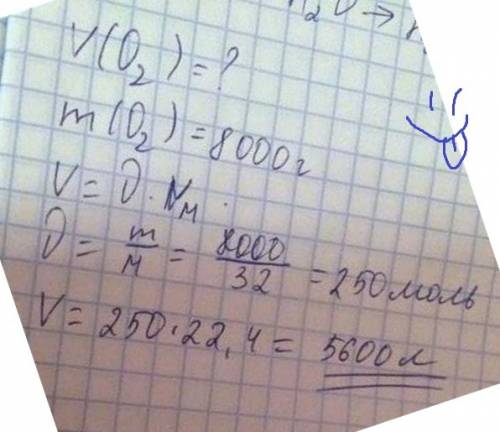 H2O →
V(O2) = ?
m(O2) = 8000г
V = ν · Vм.
ν = m/M = 8000/32 = 250 моль
V = 250 · 22,4 = 5600 л